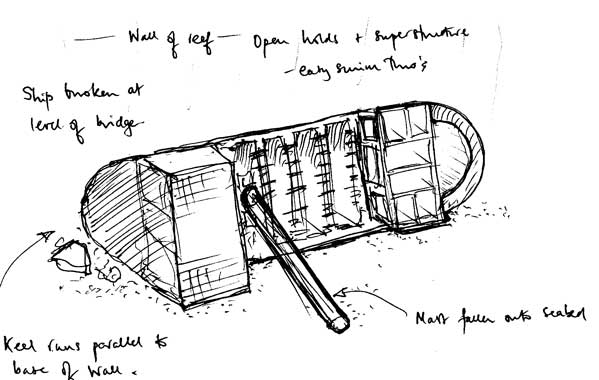 Wall of reef
Open holds + superstructure
- easy swim Thro's
Ship broken at
level of bridge
Mast fallen onto seabed
Keel runs parallel to
base of wall.